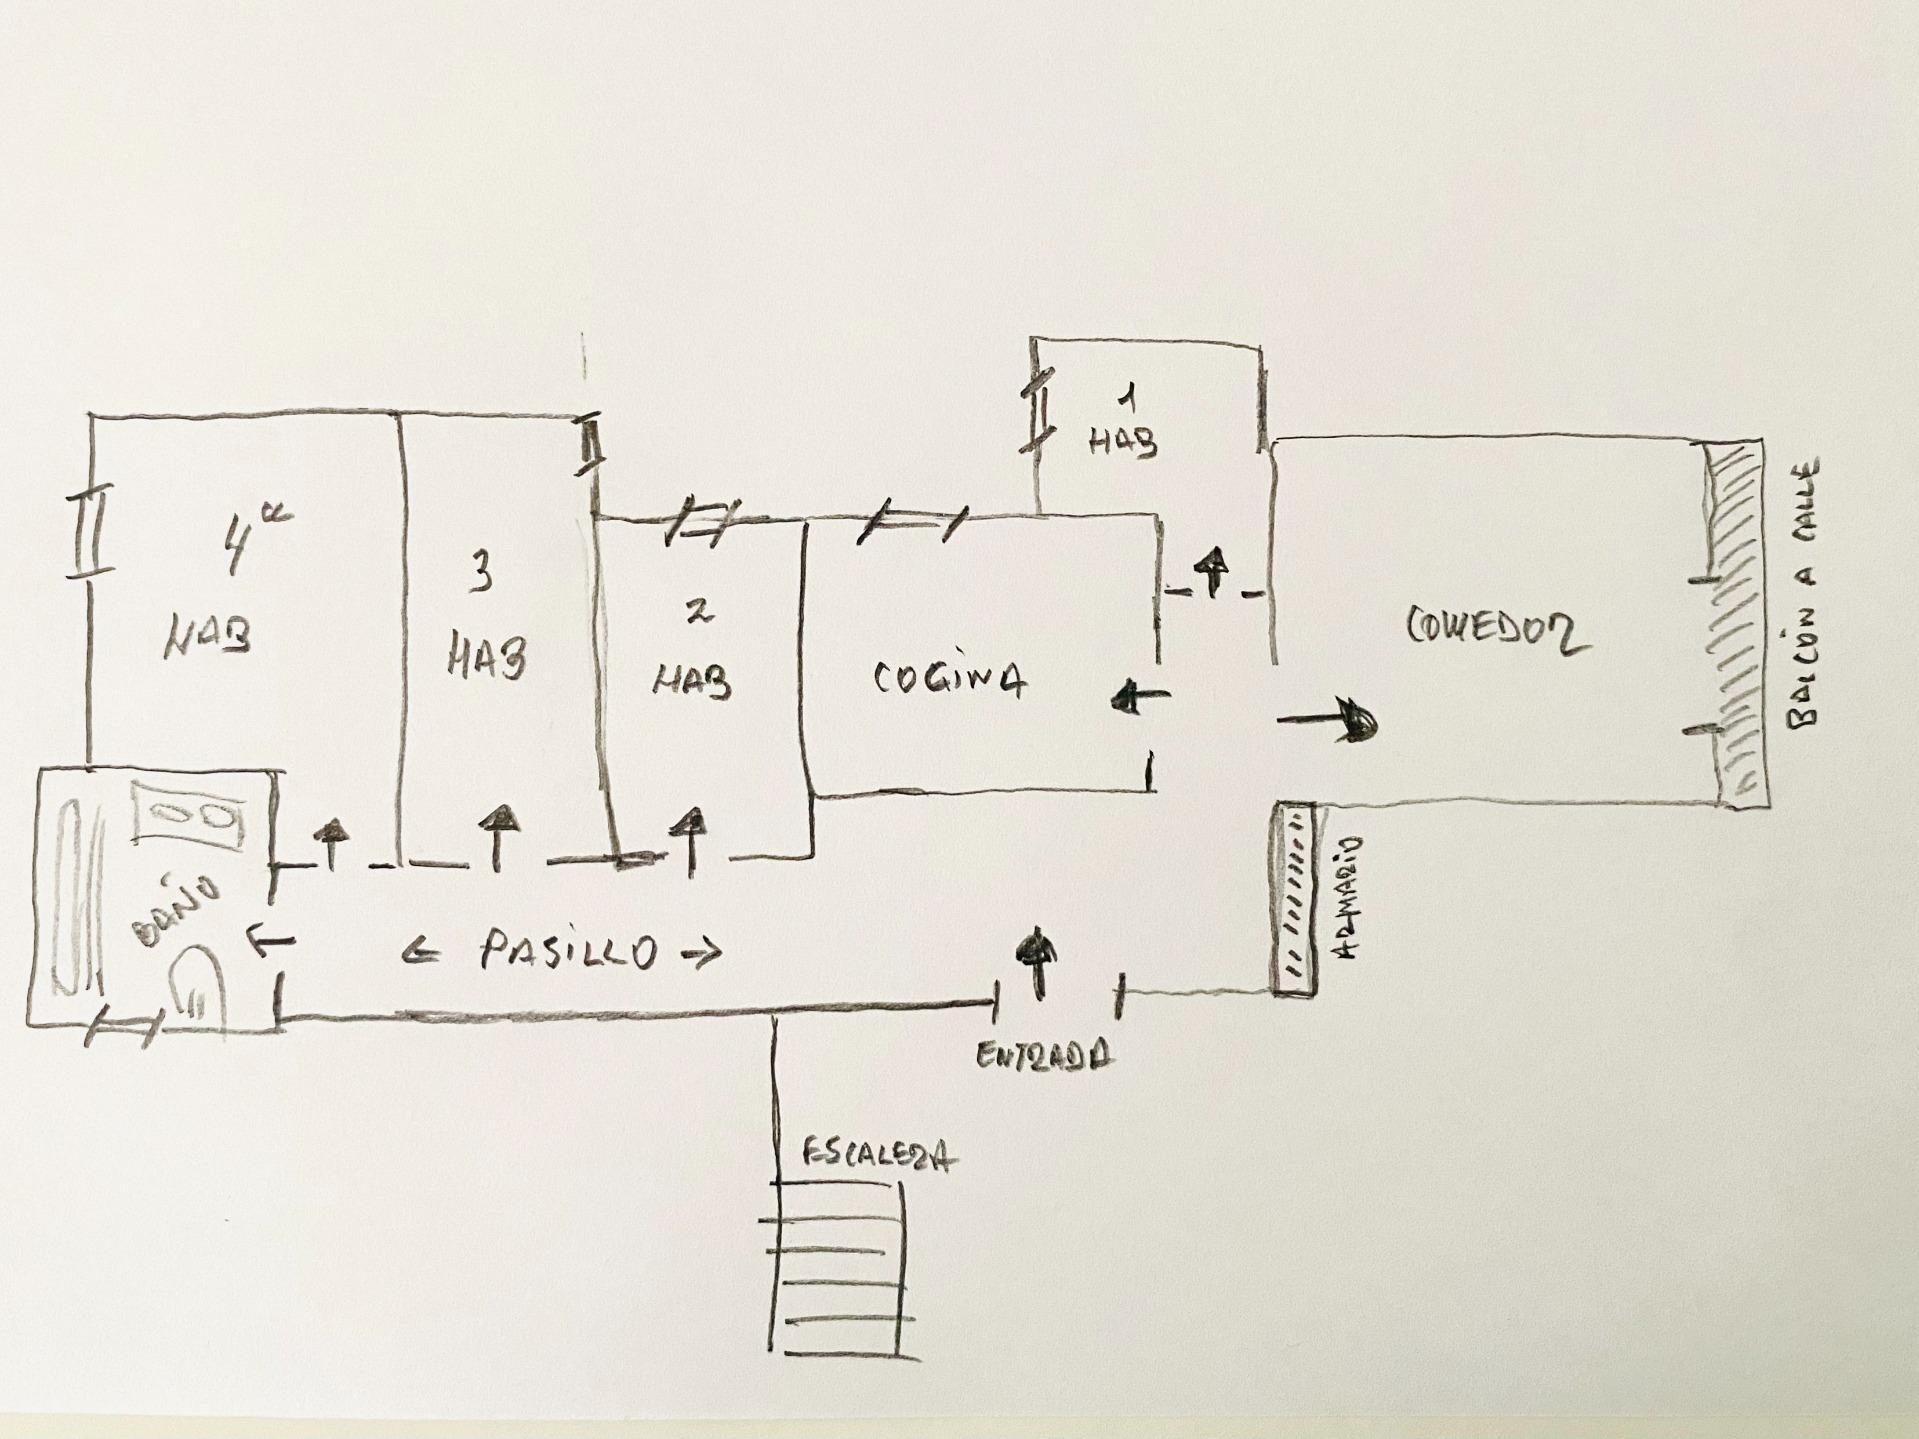 1
HAB
4ª
HAB
3
HAB
2
HAB
COCINA
COMEDOR
BALCÓN A CALLE
BAÑO
← PASILLO →
ARMARIO
ENTRADA
ESCALERA